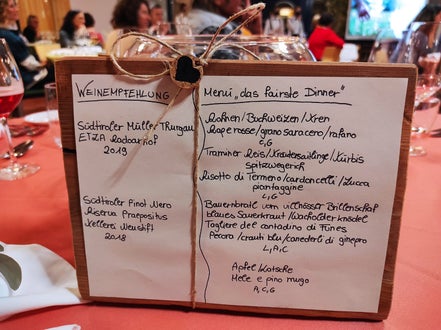 WEINEMPFEHLUNG
Südtiroler Müller Thurgau
2019
Südtiroler Pinot Nero
Riserva Praepositus
Kellerei Neustift
2018
Menü „das fairste Dinner"
Rohnen/Buchweizen/Kren
Rape rosse/grano saraceno/rafano
C,G
Traminer Reis/Kräutersaitlinge/Kürbis
Spitzwegerich
Risotto di Termeno/cardoncelli/zucca
piantaggine
L,G
Bauernbratl vom villnösser Brillenschaf
blaues Sauerkraut/Wacholderknödel
Tagliere del contadino di Funes
Pecora/crauti blu/canederli di ginepro
L,A,C
Apfel/Latsche
Mele e pino mugo
A,C,G